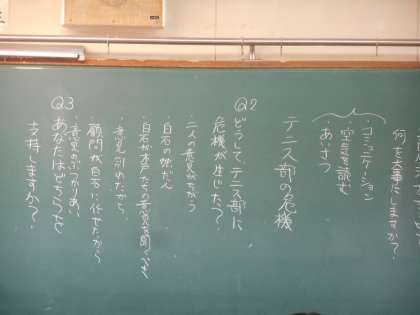 何を大事にしますか?
・コミュニケーション
空気を読む
あいさつ
テニス部の危機
Q2 どうして、テニス部に
危機が生じた?
・二人の意見がちがう
・白石の味だん
・白石が木戸たちの意見を聞くべき
・意見が別れたから、
・顧問が白石に任せたから
・意見のぶつかりあい
Q3 あなたはどちらを
支持しますか?